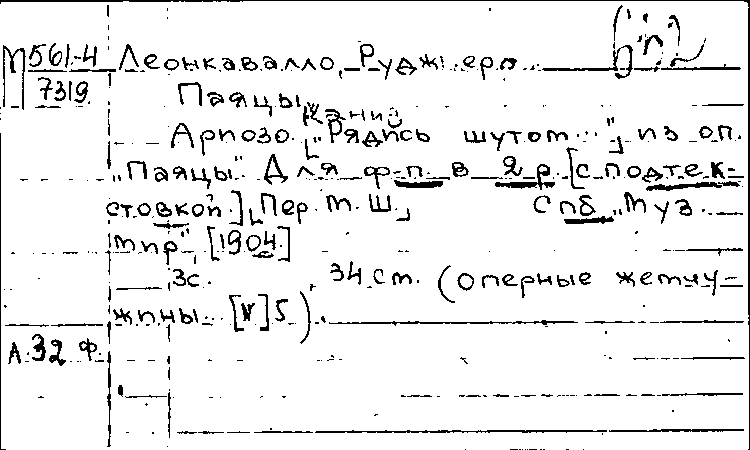 П561-4 Леонкавалло, Руджеро.
7319 Паяцы
Канио
Ариозо „Рядись шутом..." из оп.
„Паяцы". Для ф-п. в 2 р. [с подтек-
стовкой.] Пер. М. Ш. Спб „Муз.
мир", [1904]
3с. 34 см. (Оперные жемчу-
жины. [№] 5).
А.32 Ф.